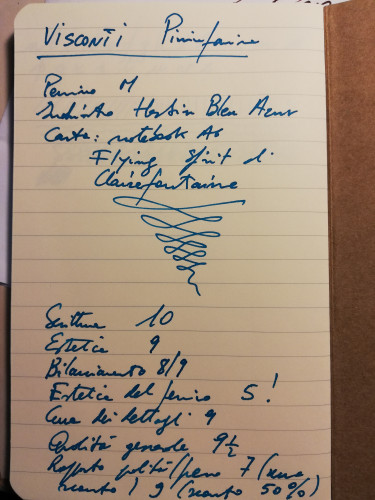 VISCONTI Pininfarina
Pennino M
Inchiostro Herbin Bleu Azur
Carta: notebook A6
Flying Spirit di
Clairefontaine
Scrittura 10
Estetica 9
Bilanciamento 8/9
Estetica del pennino 5!
Cura dei dettagli 9
Qualità generale 9½
Rapporto qualità/prezzo 7 (senza
sconto) 9 (sconto 50%)